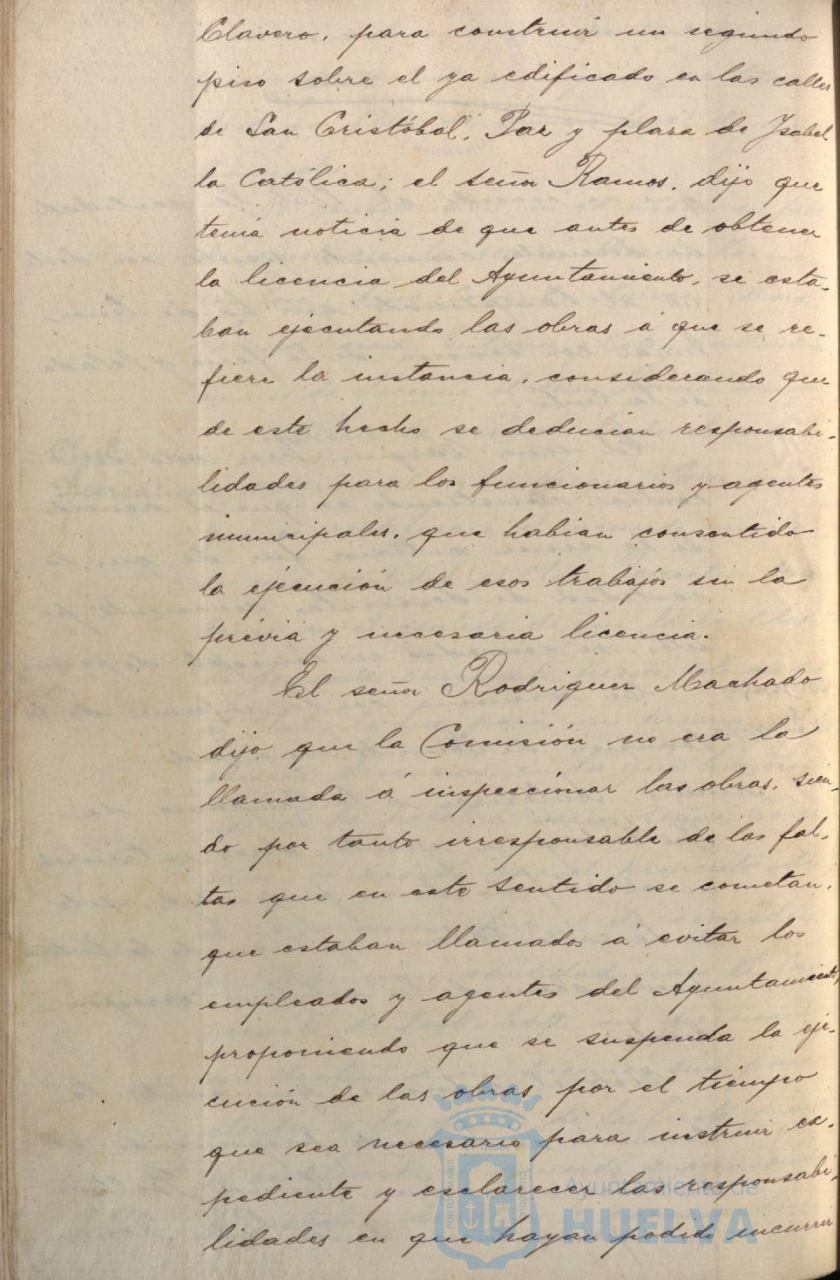 Clavero, para construir un segundo
piso sobre el ya edificado en las calles
de San Cristóbal, Paz y plaza de Ysabel
la Católica; el señor Ramos, dijo que
tenía noticia de que antes de obtener
la licencia del Ayuntamiento, se esta-
ban ejecutando las obras á que se re-
fiere la instancia, considerando que
de este hecho se deducían responsabi-
lidades para los funcionarios y agentes
municipales, que habían consentido
la ejecución de esos trabajos sin la
prévia y necesaria licencia.
El señor Rodriguez Machado
dijo que la Comisión no era la
llamada á inspeccionar las obras, sien-
do por tanto irresponsable de las fal-
tas que en este sentido se cometan,
que estaban llamados á evitar los
empleados y agentes del Ayuntamiento,
proponiendo que se suspenda la eje-
cución de las obras por el tiempo
que sea necesario para instruir ex-
pediente y esclarecer las responsabi-
lidades en que hayan podido incurrir
Ayuntamiento de
HUELVA